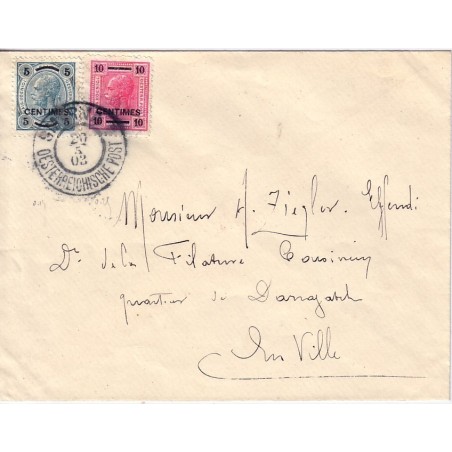 5 5
CENTIMES
5 5
10 10
CENTIMES
10 10
20
5
03
OESTERREICHISCHE POST
Monsieur A. Ziegler. Effendi
Dr de la Filature
quartier de
En Ville